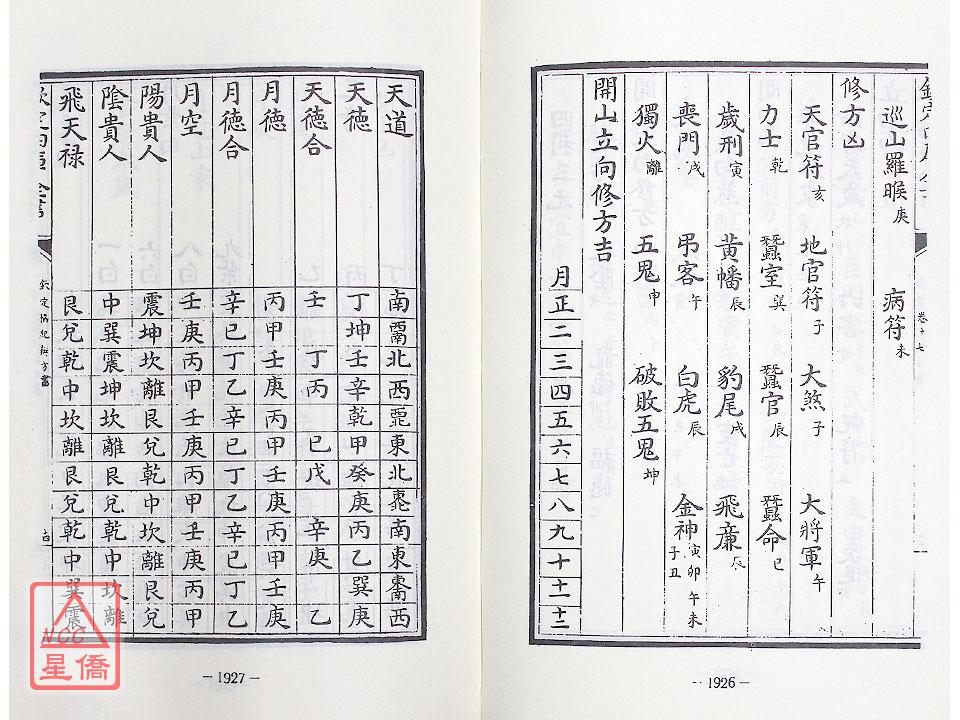 欽定四庫全書
卷十七
巡山羅睺庚 病符未
修方凶
天官符亥 地官符子 大煞子 大將軍午
力士乾 蠶室巽 蠶官辰 蠶命巳
歲刑寅 黃幡辰 豹尾戌 飛廉辰
喪門戌 弔客午 白虎辰 金神寅卯午未子丑
獨火離 五鬼申 破敗五鬼坤
開山立向修方吉
月正二三四五六七八九十十一十二
—1926—
天道 南 西南 北 西 西北 東 北 東北 南 東 東南 西
天德 丁 坤 壬 辛 乾 甲 癸 艮 丙 乙 巽 庚
天德合 壬 丁 丙 己 戊 辛 庚 乙
月德 丙 甲 壬 庚 丙 甲 壬 庚 丙 甲 壬 庚
月德合 辛 己 丁 乙 辛 己 丁 乙 辛 己 丁 乙
月空 壬 庚 丙 甲 壬 庚 丙 甲 壬 庚 丙 甲
陽貴人 震 坤 坎 離 艮 兌 乾 中 坎 離 艮 兌
陰貴人 中 巽 震 坤 坎 離 艮 兌 乾 中 坎 離
飛天祿 艮 兌 乾 中 坎 離 艮 兌 乾 中 巽 震
欽定四庫全書
欽定協紀辨方書
—1927—
NCC
星僑